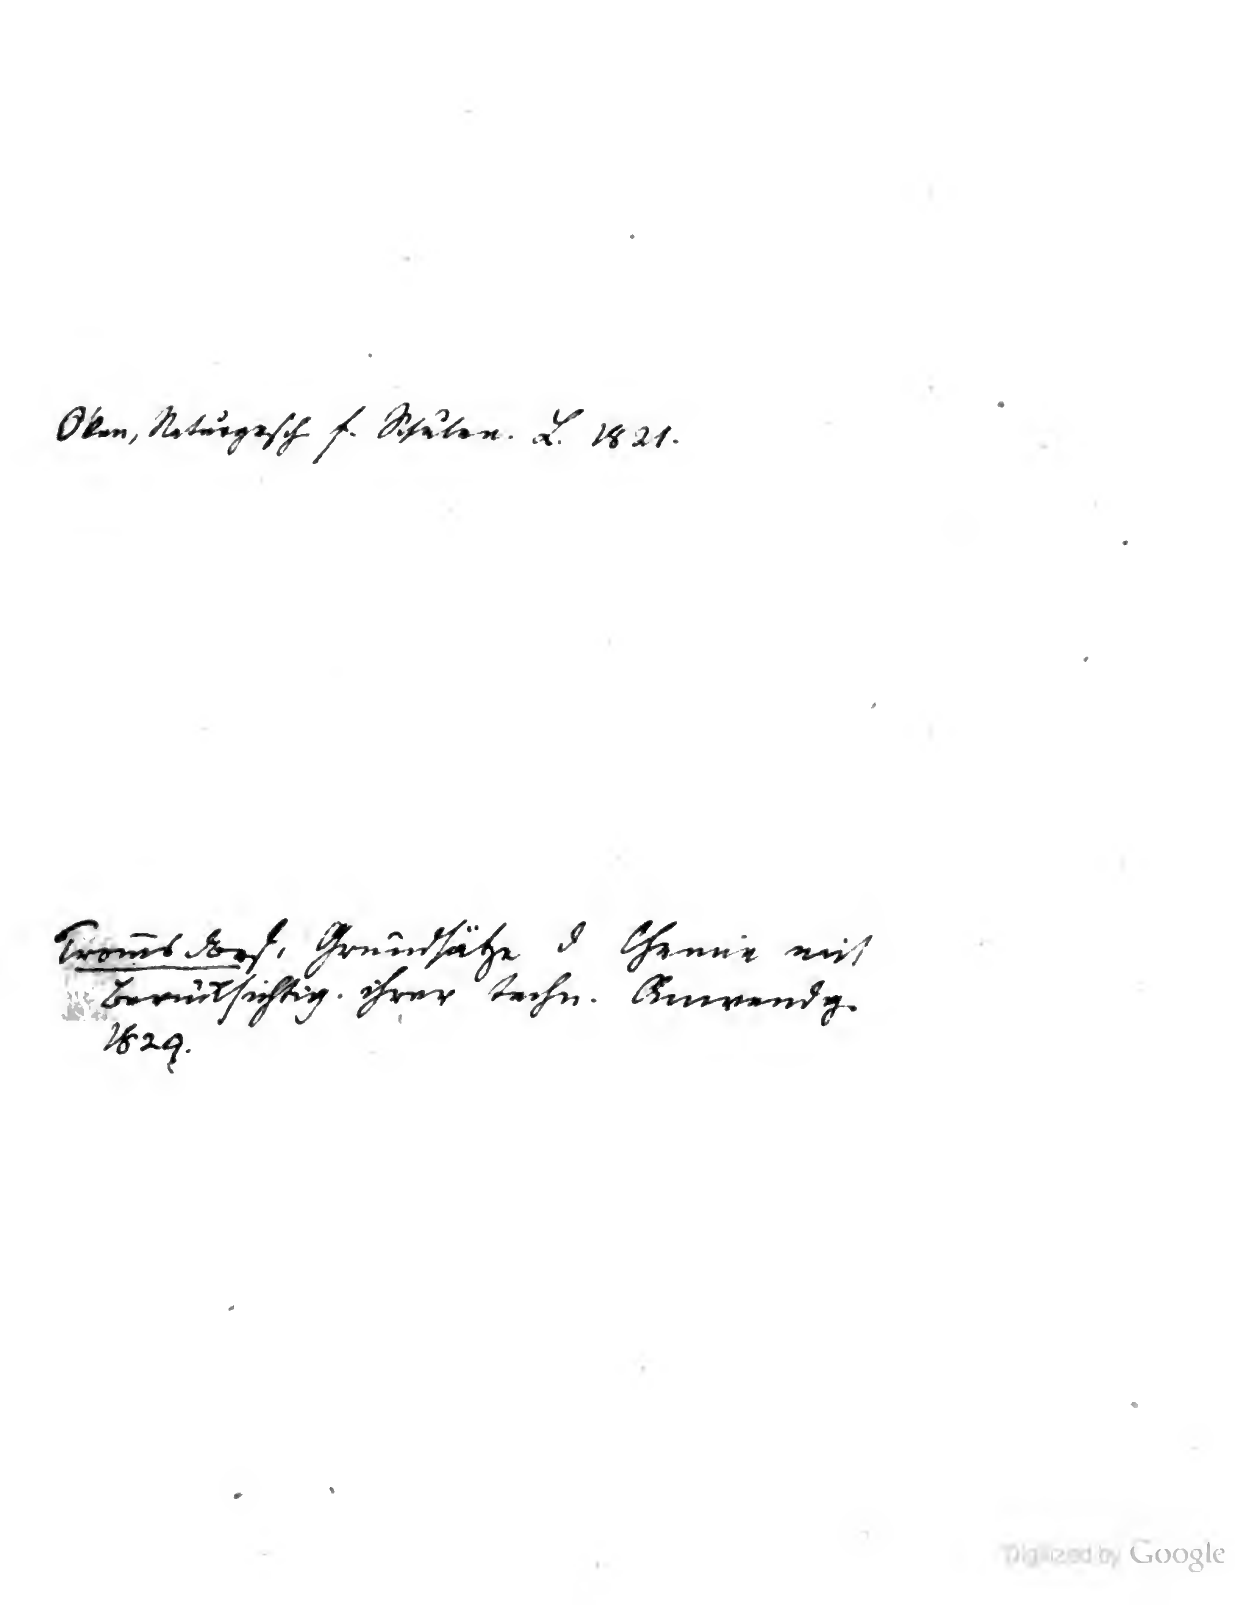 Oken, Naturgesch f. Schulen. L. 1821.
Trom̅sdorf, Grundsätze d Chemie mit
Berücksichtig. ihrer techn. Anwendg.
1829.
Digitized by Google